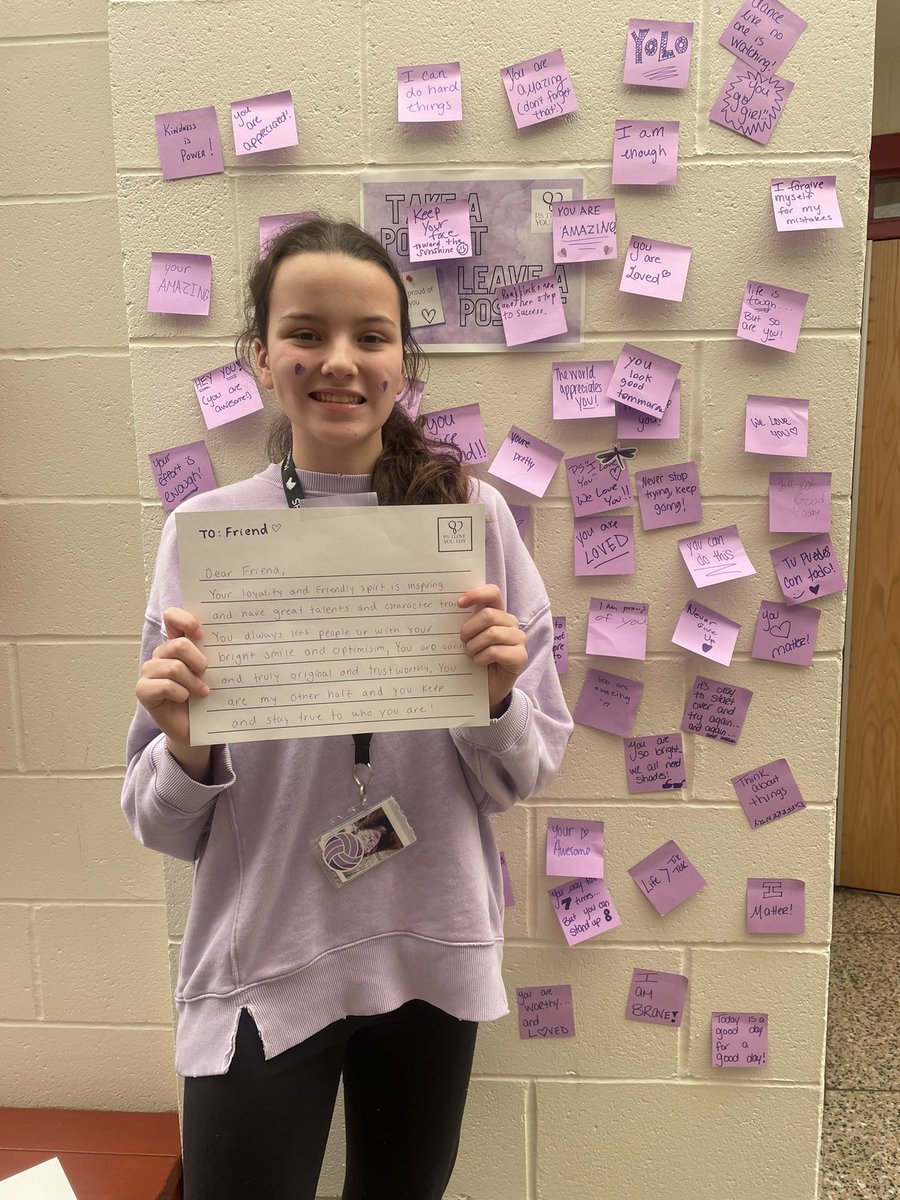 dance
like no
one is
watching!
YOLO
You
go
girl!!
I can
do hard
things
You are
amazing
(don't forget
that!)
you
are
appreciated!
Kindness
is
Power!
I am
enough
I forgive
myself
for my
mistakes
TAKE A
POST
LEAVE A
POS
P.S. I LOVE
YOU DAY
Keep
Your
face
toward the
sunshine
YOU ARE
AMAZING
you are
Loved
proud of
you
Roadblocks are
another step
to success.
your
AMAZING
life is
tough....
But so
are you!
HEY YOU!
(you are
awesome)
The world
appreciates
YOU!
you
look
good
tommorrow
you!
We love
you
you
are
Youre
pretty
your
effort is
enough!
PS "I Love
You"
We Love
You!!
Never stop
trying, keep
going!
you are
LOVED
Good
today
you can
do this
Tu puedes
con todo!
I am proud
of you
Never
Give
up
You
matter!
You are
amazing
it's okay
to start
over and
try again...
and again
You are
so bright
we all need
shades!
Think
about
things
DIFFERENTLY
Your
Awesome
Life > Tik
Tok
You may fall
7 times...
But you can
stand up 8
I
Matter!
you are
worthy...
and LOVED
I
am
BRAVE!
Today is a
good day
for a
good day!
TO: Friend
P.S. I LOVE
YOU DAY
Dear Friend,
Your loyality and friendly spirt is inspiring
and have great talents and character tra
You always lift people up with your
bright smile and optimisim, You are
and truly original and trustworthy, You
are my other half and you keep
and stay true to who you are!